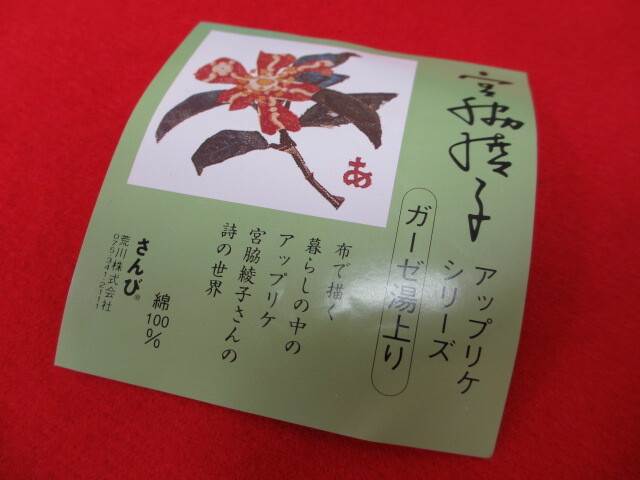 宮脇綾子
アップリケ
シリーズ
ガーゼ湯上り
あ
布で描く
暮らしの中の
アップリケ
宮脇綾子さんの
詩の世界
綿100%
さんび®
荒川株式会社
075-341-2111